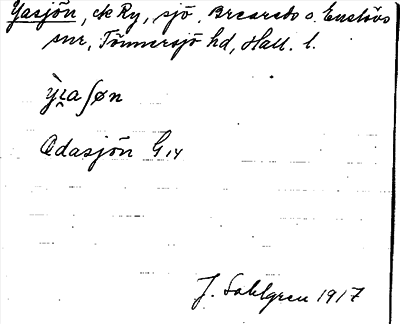 Yasjön, ek Ry, sjö, Breareds o. Enslövs
snr, Tönnersjö hd, Hall. l.
y̖ɩaʃøn
Odasjön G 14
J. Sahlgren 1917